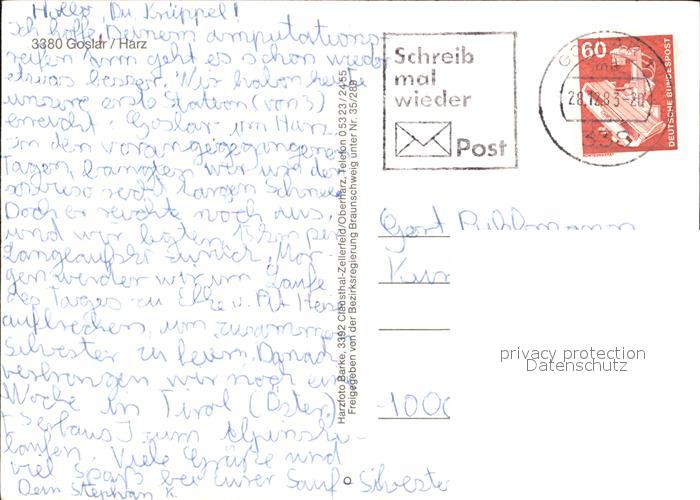 Hallo, Du Knüppel!
Ich hoffe, Deinem amputations-
reifen Arm geht es schon wieder
etwas besser. Wir haben heute
unsere erste Station (von 3)
erreicht: Goslar im Harz.
In den vorangegangenen
Tagen bangten wir um den
sowieso recht kargen Schnee.
Doch er reichte noch aus,
und wir legten 15 km per
Langlaufski zurück. Mor-
gen werden wir im Laufe
des Tages zu Elke u.
aufbrechen, um zusammen
Silvester zu feiern. Danach
verbringen wir noch eine
Woche in Tirol (Öster)
zum Alpinski-
laufen. Viele Grüße und
viel Spaß bei eurer Sauf-Silvester
Dein Stephan K.
3380 Goslar / Harz
Harzfoto Barke, 3392 Clausthal-Zellerfeld/Oberharz, Telefon 0 53 23 / 24 55
Freigegeben von der Bezirksregierung Braunschweig unter Nr. 35/289
Schreib
mal
wieder
Post
28.12.83-20
338
60
DEUTSCHE BUNDESPOST
Gert
Kur
-100
privacy protection
Datenschutz